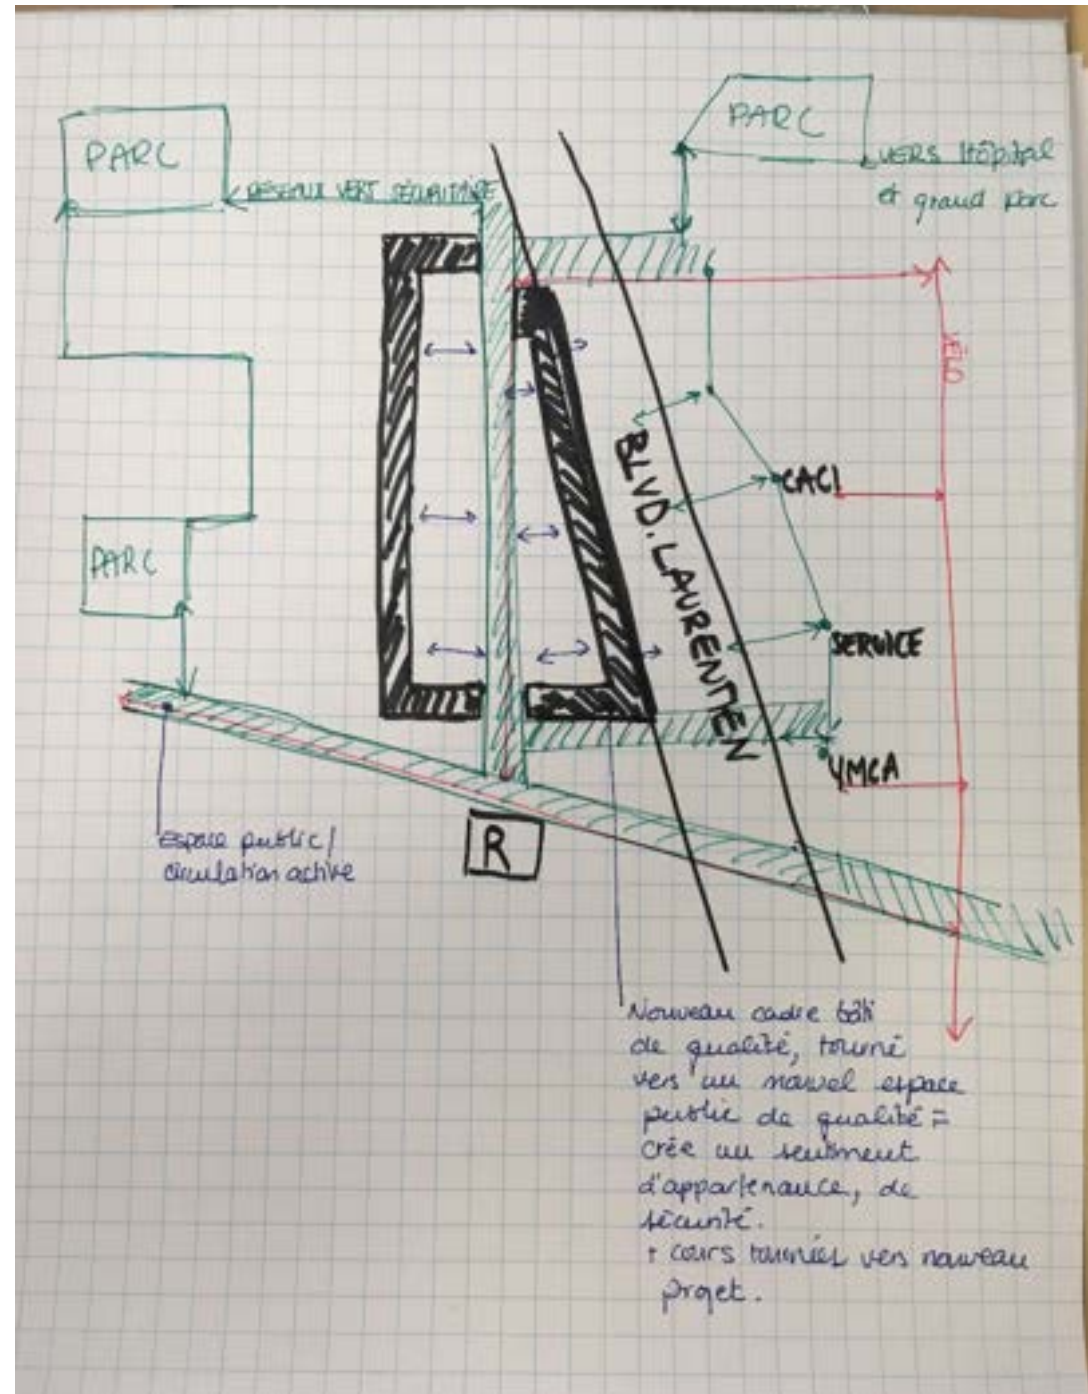 PARC
PARC
VERS Hôpital
et grand parc
RÉSEAUX VERT SÉCURITAIRE
BLVD. LAURENTIEN
CACI
PARC
SERVICE
YMCA
R
Espace public/
circulation active
Nouveau cadre bâti
de qualité, tourné
vers un nouvel espace
public de qualité =
crée un sentiment
d'appartenance, de
sécurité.
+ cours tournées vers nouveau
projet.